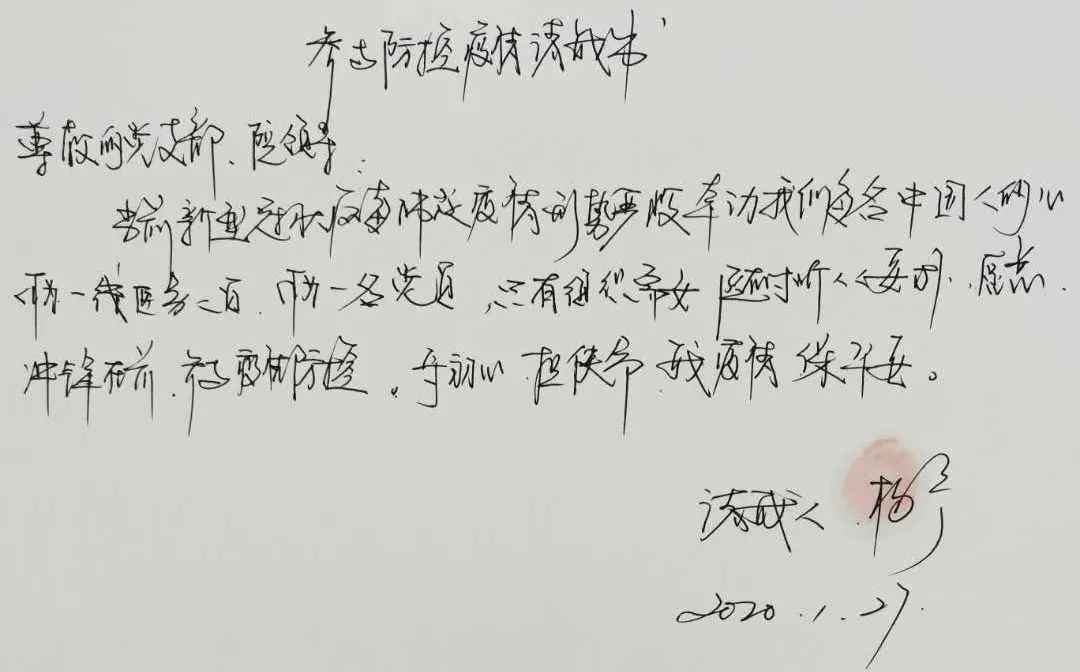 参与防控疫情请战书
尊敬的党支部、院领导:
当前新型冠状病毒肺炎疫情形势严峻牵动我们每名中国人的心
作为一线医务人员,作为一名党员,只有组织需要随时听从安排,愿意
冲锋在前,参与疫情防控。守初心 担使命 战疫情 保平安。
请战人 杨
2020.1.27.